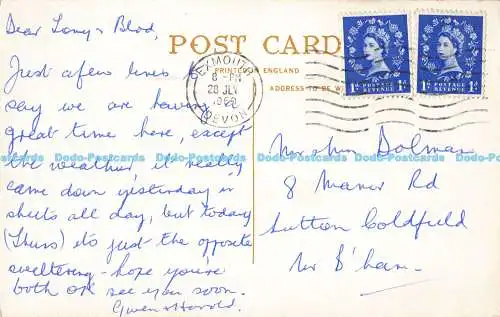 Dear Tony & Blod,
Just a few lines to
say we are having
great time here, except
the weather, it really
came down yesterday in
sheets all day, but today
(Thurs) its just the opposite
sweltering - hope you're
both OK see you soon.
Gwen & Harold.
POST CARD
PRINTED IN ENGLAND
ADDRESS TO BE
EXMOUTH
8 - PM
28 JLY
DEVON
1D POSTAGE REVENUE 1D
1D POSTAGE REVENUE 1D
Dolman
8 Manor Rd
Sutton Coldfield
Nr B'ham
Dodo-Postcards Dodo-Postcards Dodo-Postcards Dodo-Postcards
Dodo-Postcards Dodo-Postcards Dodo-Postcards Dodo-Postcards